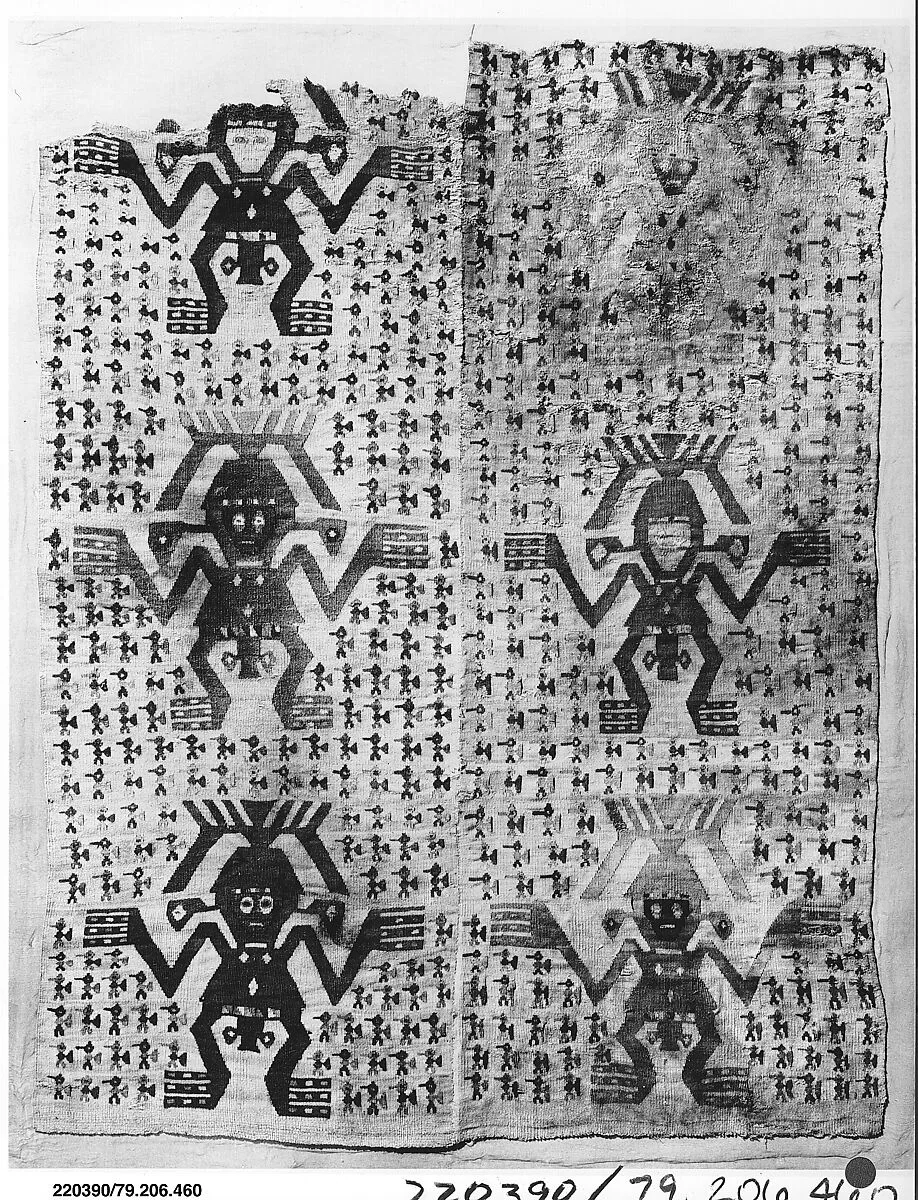 220390/79.206.460 220390/79.206.460